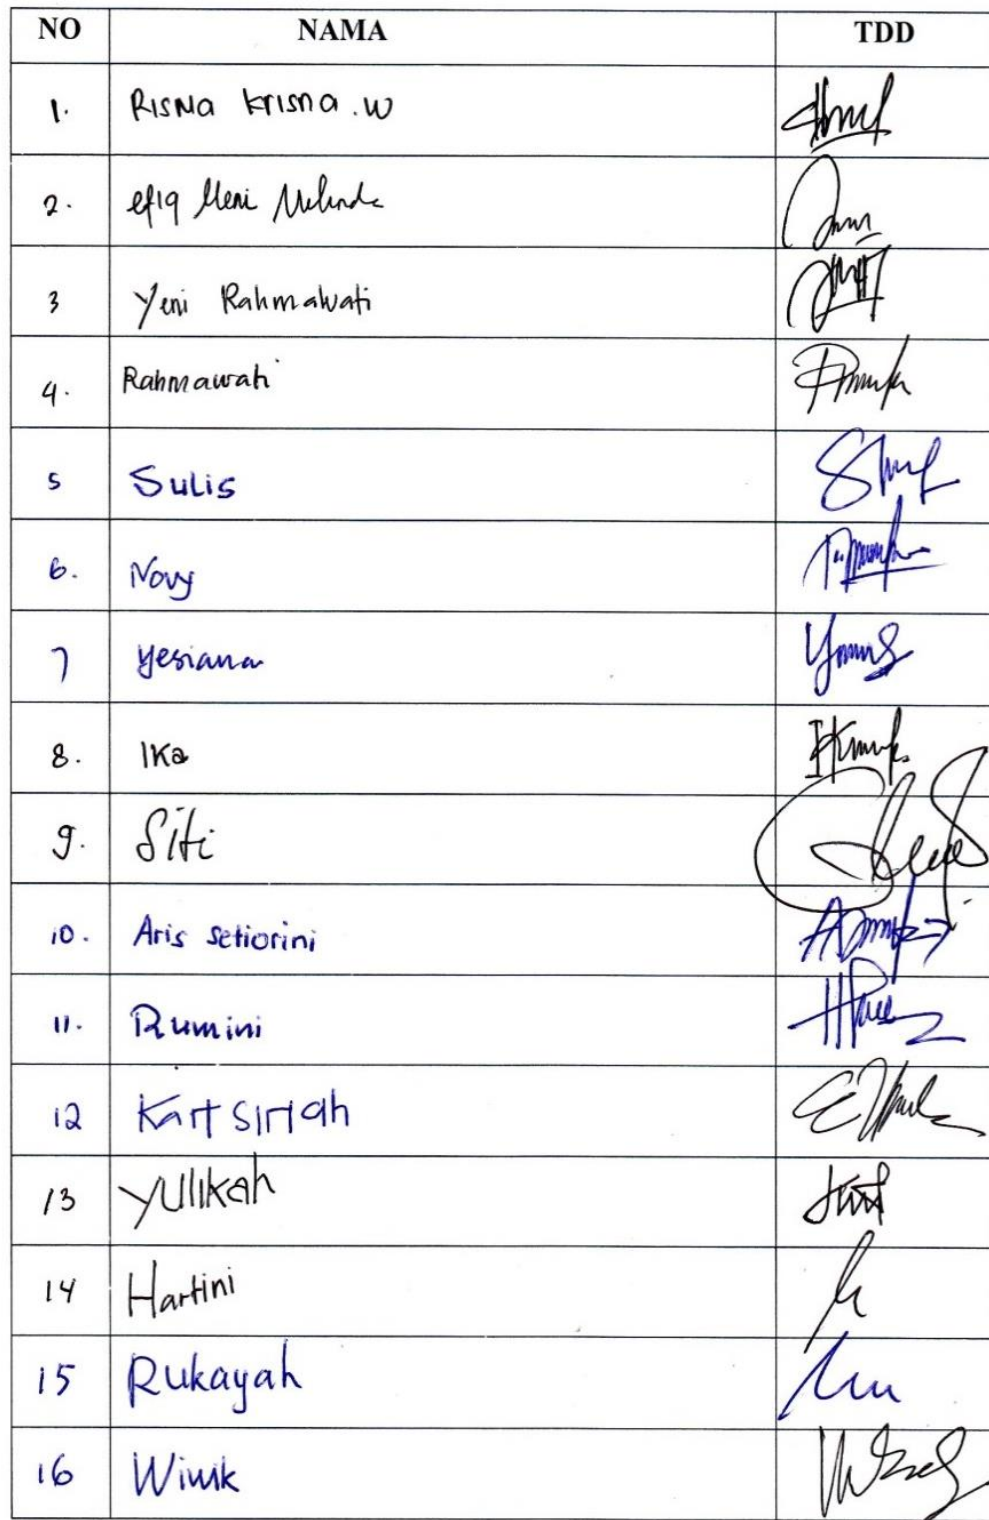 NO NAMA TDD
1. Risma Krisna .W
2. efiq Meni Melinda
3 Yeni Rahmawati
4. Rahmawati
5 Sulis
6. Novy
7 Yesiana
8. Ika
9. Siti
10. Aris setiorini
11. Rumini
12 Kartsiriah
13 Yulikah
14 Hartini
15 Rukayah
16 Winik